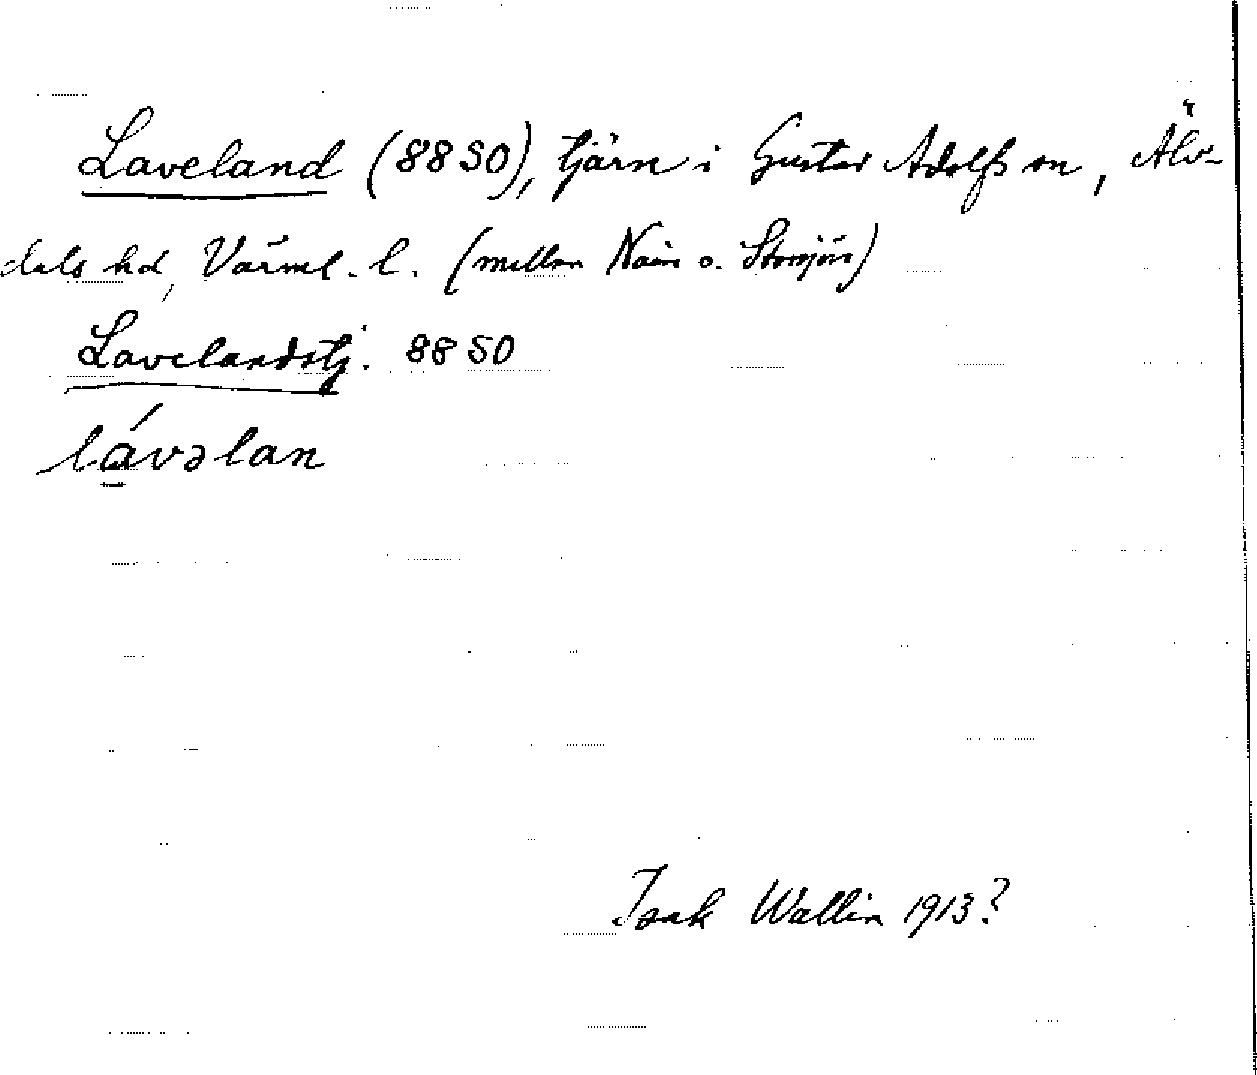 Laveland (8850), tjärn i Gustav Adolfs sn, Älv-
dals hd, Värml. l. (mellan Nain o. Storsjön)
Lavelandstj. 8850
lávəlan
Isak Wallin 1913?